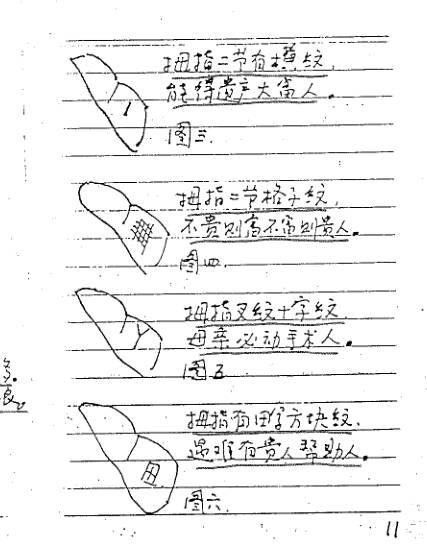 拇指二节有横纹，
能得遗产大富人。
图三.
拇指二节格子纹，
不贵则富不富则贵人。
图四.
拇指叉纹十字纹
母亲必动手术人。
图五
拇指有田字方块纹.
遇难有贵人帮助人。
图六.
田
11